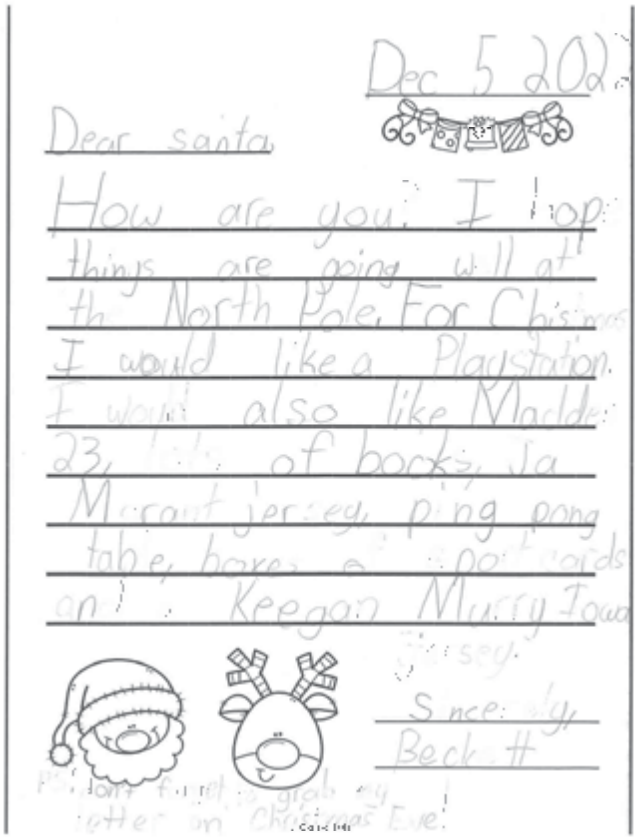 Dec 5 202
Dear santa,
How are you? I hop
things are going well at
the North Pole. For Chistmas
I would like a Playstation.
I would also like Madde
23, of books, Ja
Morant jersey, ping pong
table, boxes of sport cards
and Keegan Murry Iowa
Jersey.
Sincerely,
Beckett
PS. don't forget to grab my
letter on Christmas Eve!